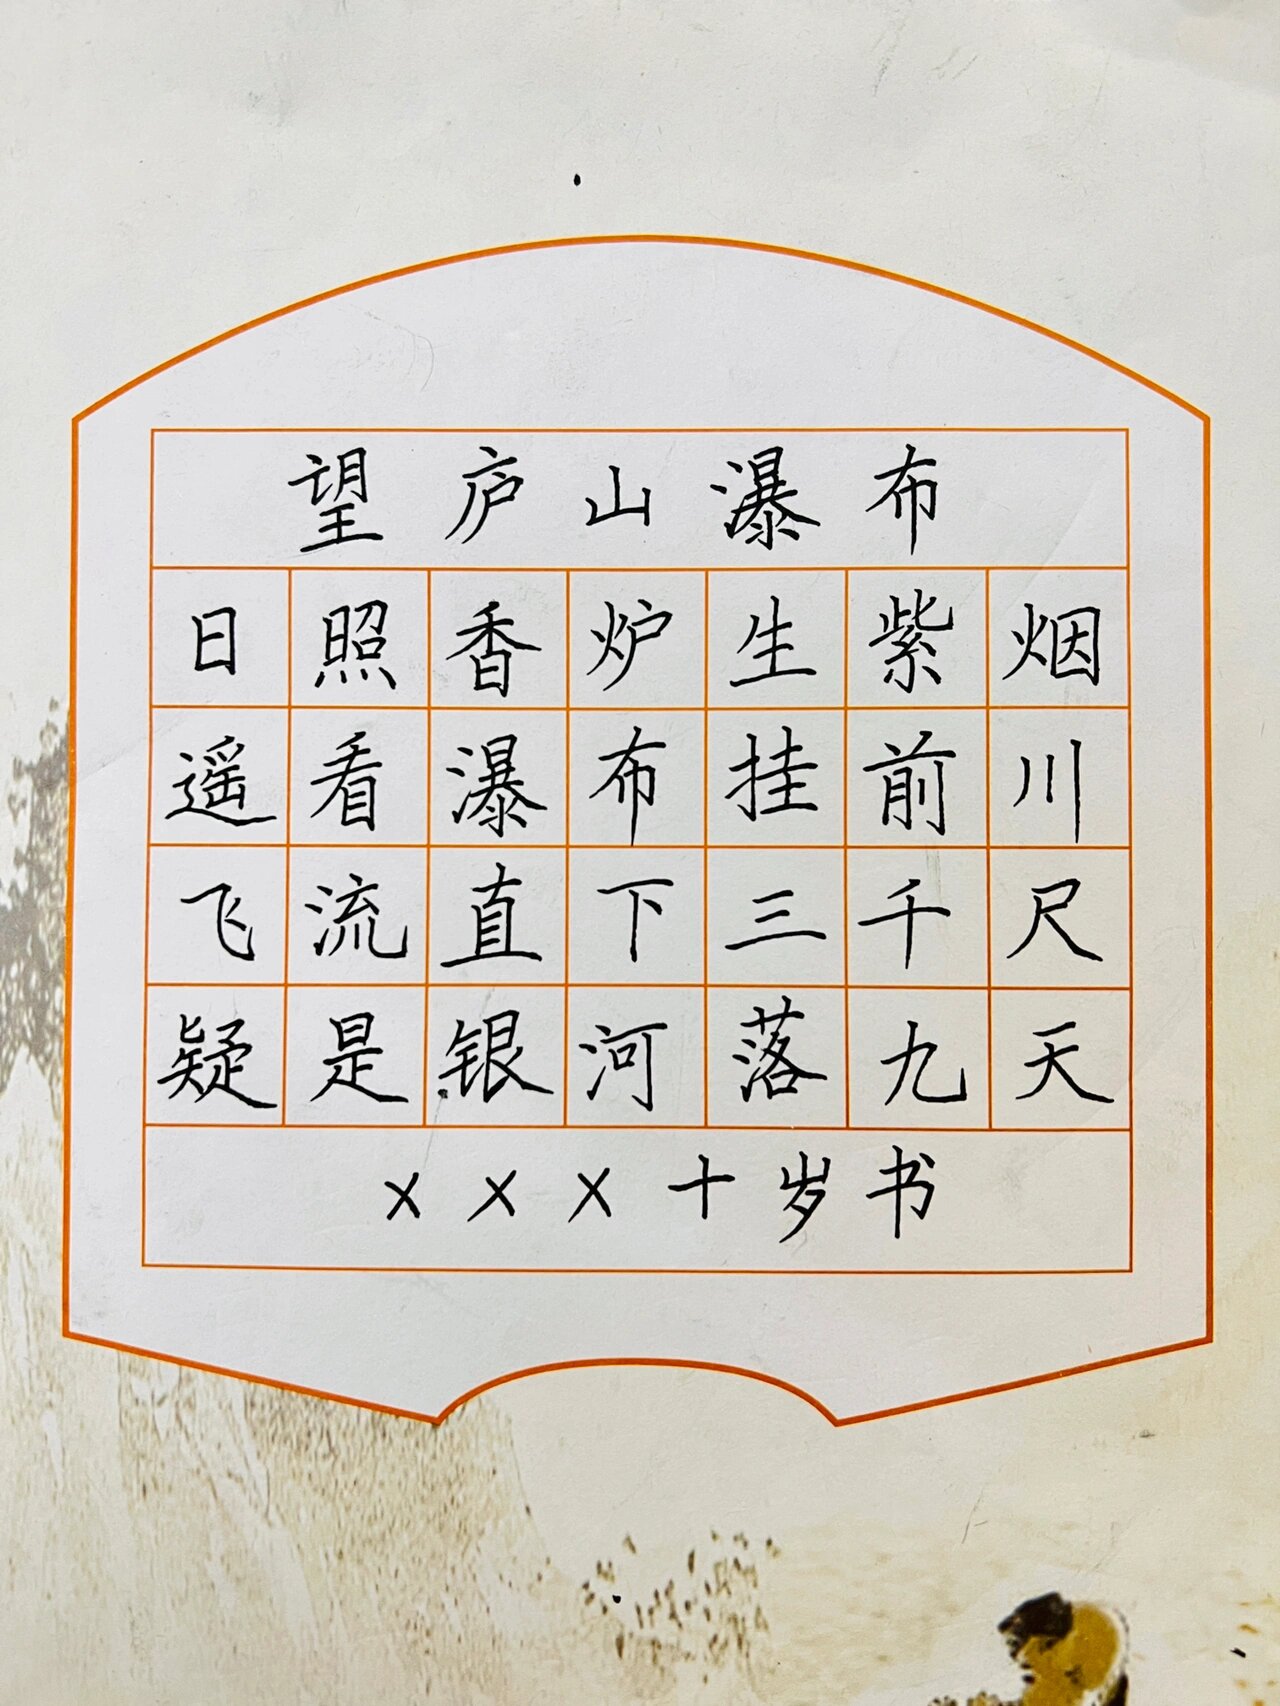 望庐山瀑布
日照香炉生紫烟
遥看瀑布挂前川
飞流直下三千尺
疑是银河落九天
×××十岁书